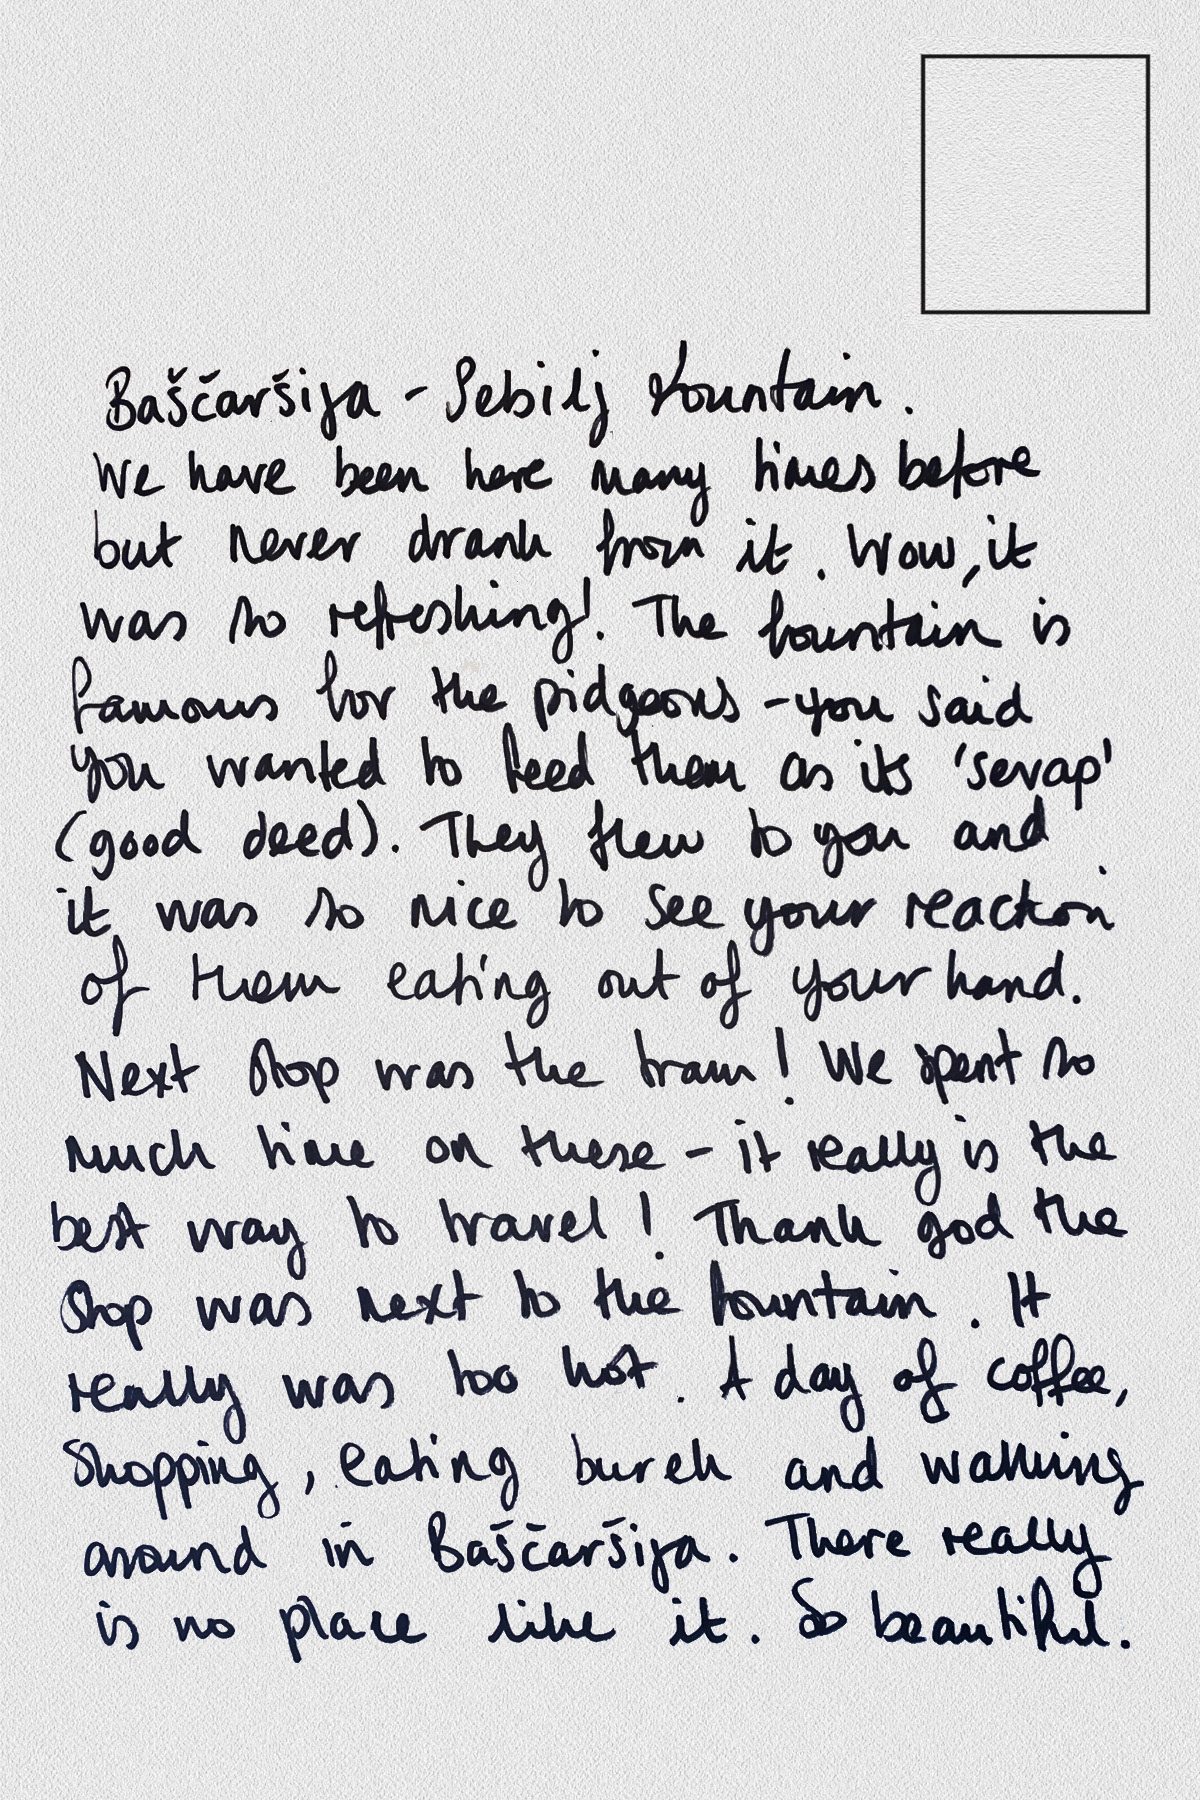 Baščaršija - Sebilj Fountain.
We have been here many times before
but never drank from it. Wow, it
was so refreshing!. The fountain is
famous for the pidgeons - you said
you wanted to feed them as its 'sevap'
(good deed). They flew to you and
it was so nice to see your reaction
of them eating out of your hand.
Next stop was the tram! We spent so
much time on these - it really is the
best way to travel! Thank god the
stop was next to the fountain. It
really was too hot. A day of coffee,
Shopping, eating burek and walking
around in Baščaršija. There really
is no place like it. So beautiful.